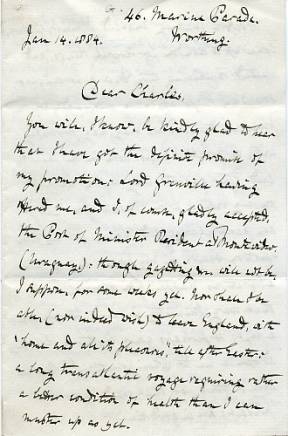 46. Marine Parade.
Worthing.
Jan 14. 1884.
Dear Charles,
You will, I know, be kindly glad to hear
that I have got the definite promise of
my promotion: Lord Granville having
offered me, and I, of course, gladly accepted,
the Post of Minister Resident at Montevideo
(Uruguay): though gazetting me will not be,
I suppose, for some weeks yet. Nor shall I be
able, (nor indeed wish) to leave England, with
"home and all its pleasures," till after Easter:
a long transatlantic voyage requiring rather
a better condition of health than I can
muster up as yet.